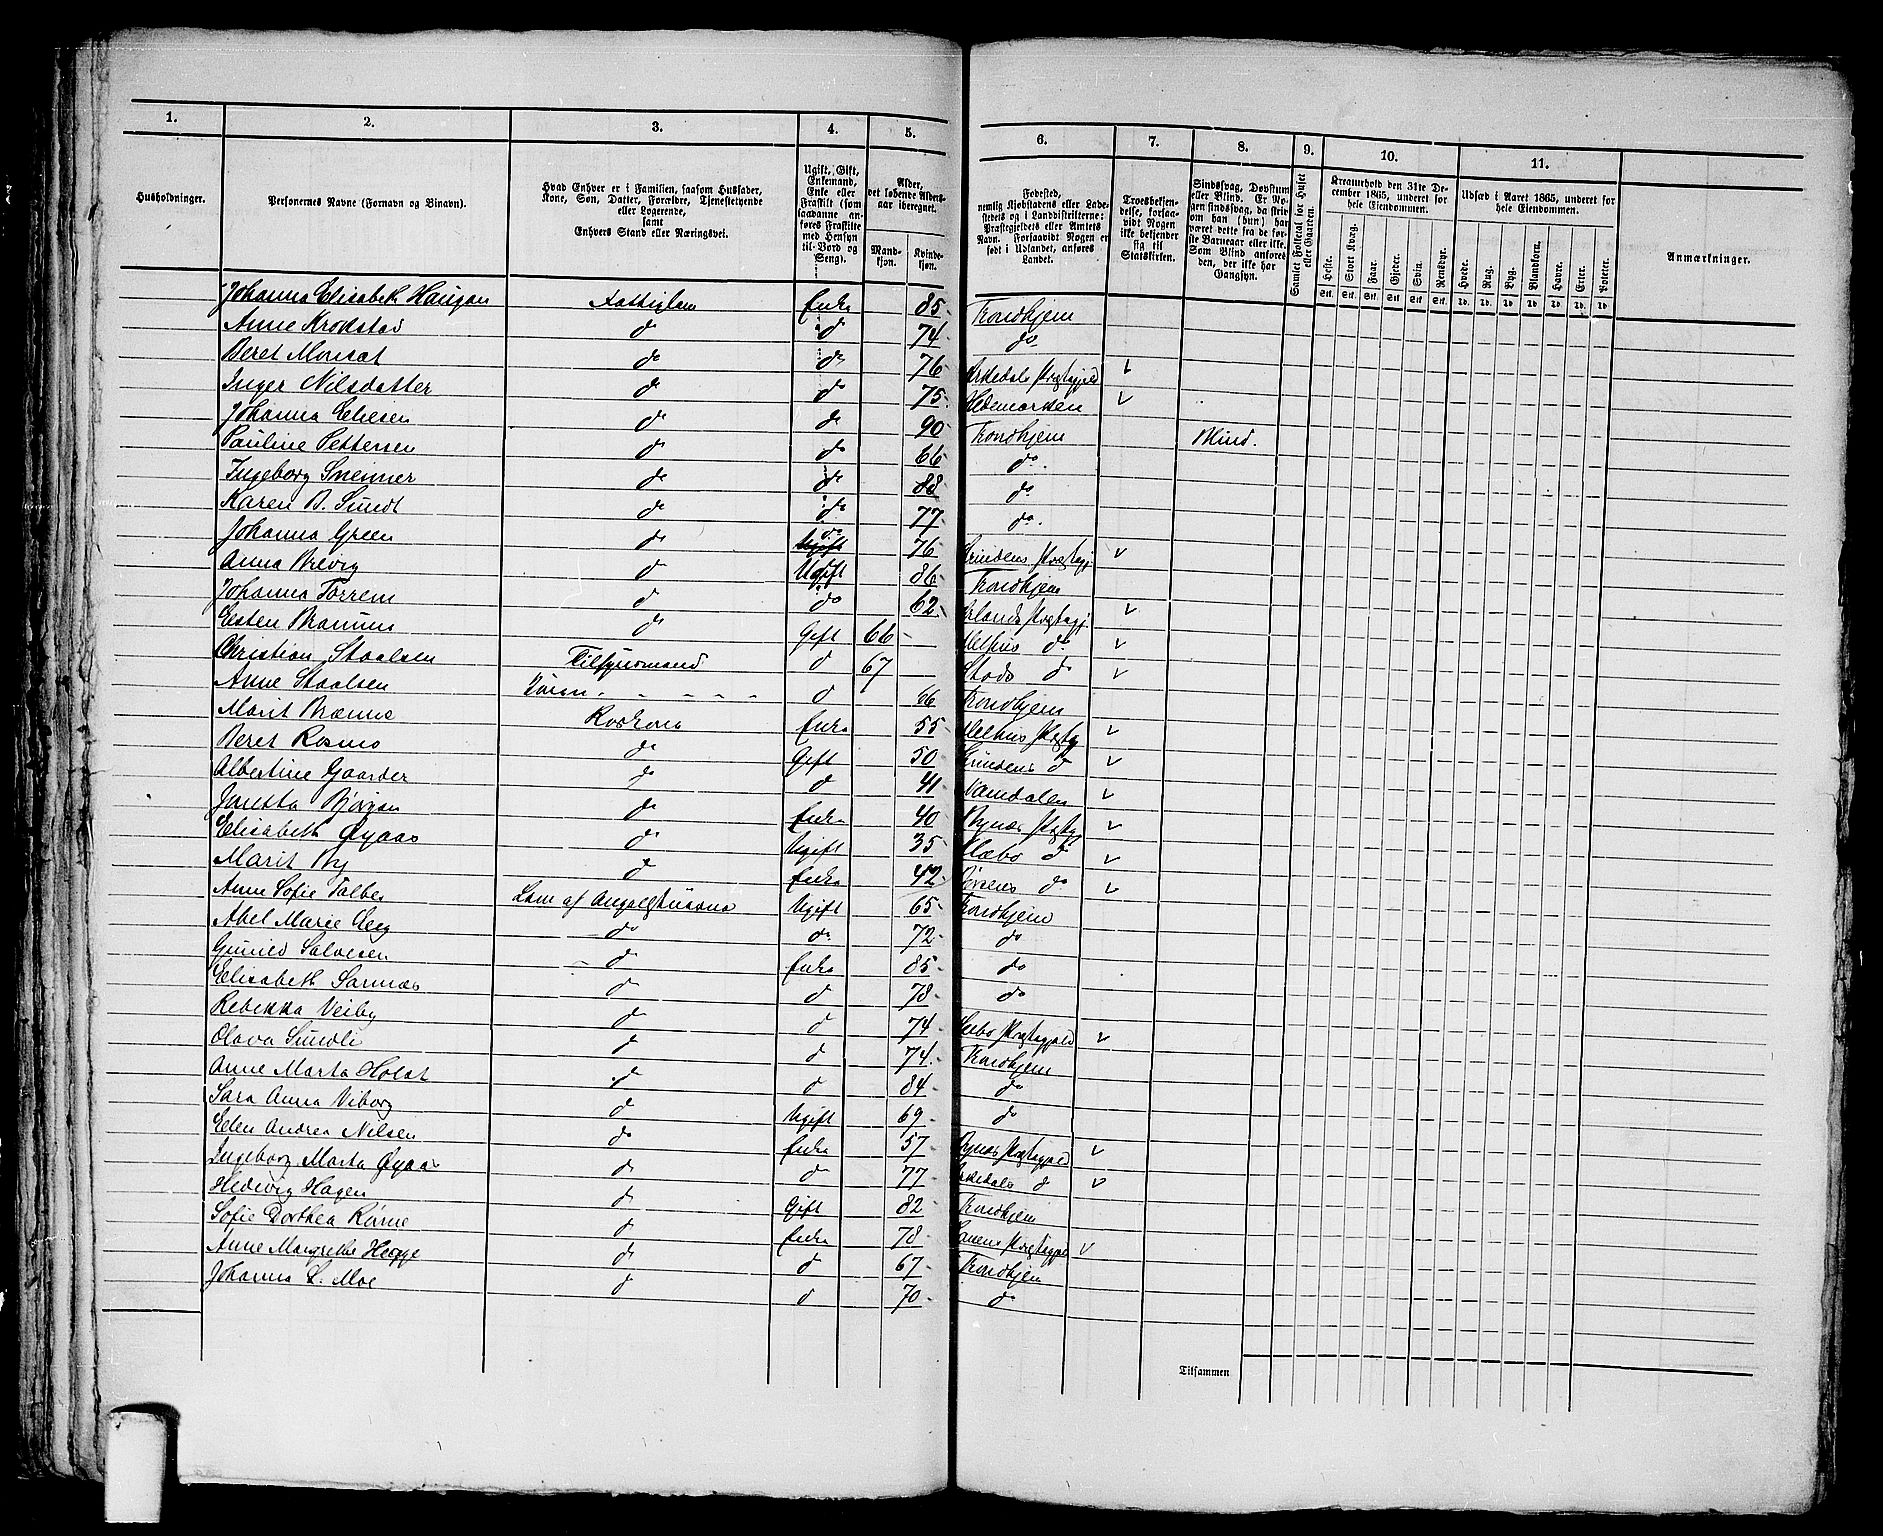 1. 2. 3. 4. 5. 6. 7. 8. 9. 10. 11.
Husholdninger.
Personernes Navne (Fornavn og Binavn).
Hvad Enhver er i Familien, saasom Husfader,
Kone, Søn, Datter, Forældre, Tjenestetyende
eller Logerende,
samt
Enhvers Stand eller Næringsvei.
Ugift, Gift,
Enkemand,
Enke eller
Fraskilt (som
saadanne an-
føres Fraskilte
med Hensyn
til Bord og
Seng).
Alder,
det løbende Alders-
aar iberegnet.
Mand-
kjøn.
Kvinde-
kjøn.
Fødested,
nemlig Kjøbstadens eller Lade-
stedets og i Landdistrikterne:
Præstegjeldets eller Amtets
Navn. Forsaavidt Nogen er
født i Udlandet, anføres
Landet.
Troesbekjen-
delse, forsaa-
vidt Nogen
ikke bekjender
sig til
Statskirken.
Sindssvag, Døvstum
eller Blind. Er No-
gen sindssvag, da skriv
om han (hun) har
været dette fra de før-
ste Barneaar eller ikke.
Som Blind anføres
den, der ikke har
Gangsyn.
Samlet Folketal for Huset
eller Gaarden.
Kreaturhold den 31te De-
cember 1865, underet for
hele Eiendommen.
Heste. Stort Kvæg. Faar. Gjeder. Svin. Rensdyr.
Stk. Stk. Stk. Stk. Stk. Stk.
Udsæd i Aaret 1865, underet for
hele Eiendommen.
Hvede. Rug. Byg. Blandkorn. Havre. Erter. Poteter.
Td. Td. Td. Td. Td. Td. Td.
Anmærkninger.
Johanna Elisabeth Haugan Fattiglem Enke 85 Trondhjem
Anne Krokstad do do 74 do
Beret Monsat do do 76 Orkedals Prstgjeld v
Inger Nilsdatter do do 75 Hedemarken v
Johanna Eliesen do do 90 Trondhjem Blind.
Pauline Pettersen do do 66 do
Ingeborg Sneimer do do 88 do
Karen B. Sundt do do 77 do
Johanna Green do do 76 Strindens Prstgj v
Anna Brevig do Ugift 86 Trondhjem
Johanna Torrem do do 62 Ørlands Prstgj v
Esten Braruns do Gift 66 Melhus do v
Christian Staalsen Tilsynsmand do 67 Stods do v
Anne Staalsen do 66 Trondhjem
Marit Brænne Kokkone Enke 55 Melhus Prstgj v
Beret Rosmo do Gift 50 Strindens do v
Albertine Gaarder do do 41 Namdalen v
Janetta Bjørgan do Enke 40 Bynæs Prstgj v
Elisabeth Øyaas do Ugift 35 Klæbo do v
Marit By do Enke 42 Børsens do v
Anne Sofie Talbes Lem af Angelltuerne Ugift 65 Trondhjem
Abel Marie Aeeg do do 72 do
Gunild Salvesen do Enke 85 do
Elisabeth Sarnæs do do 78 do
Rebekka Veiby do do 74 Prstgjeld v
Olava Sundli do do 74 Trondhjem
Anne Marta Holst do do 84 do
Sara Anna Viborg do Ugift 69 do
Elen Andrea Nilsen do Enke 57 Bynæs Prstgjeld v
Ingeborg Marta Øyaas do do 77 Orkedals do v
Hedevig Hagen do Gift 82 Trondhjem
Sofie Dorthea Rønne do Enke 78 Prstgjeld v
Anne Margrethe Hegge do do 67 Trondhjem
Johanna L. Moe do do 70 do
Tilsammen